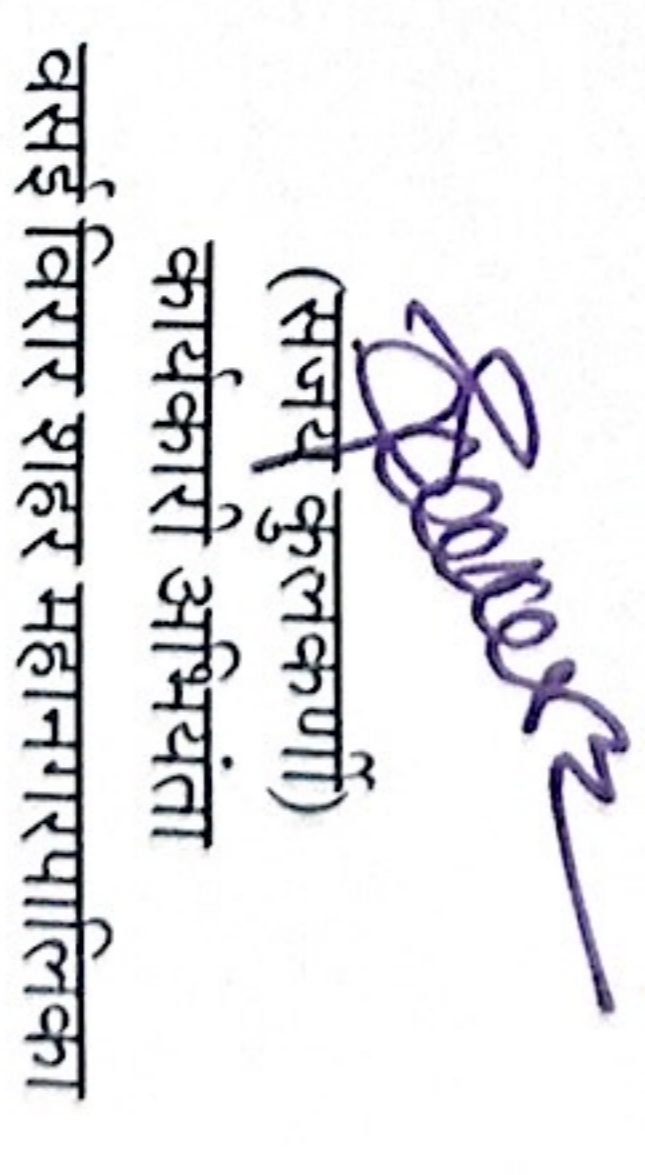 (संजय कुलकर्णी)
कार्यकारी अभियंता
वसई विरार शहर महानगरपालिका